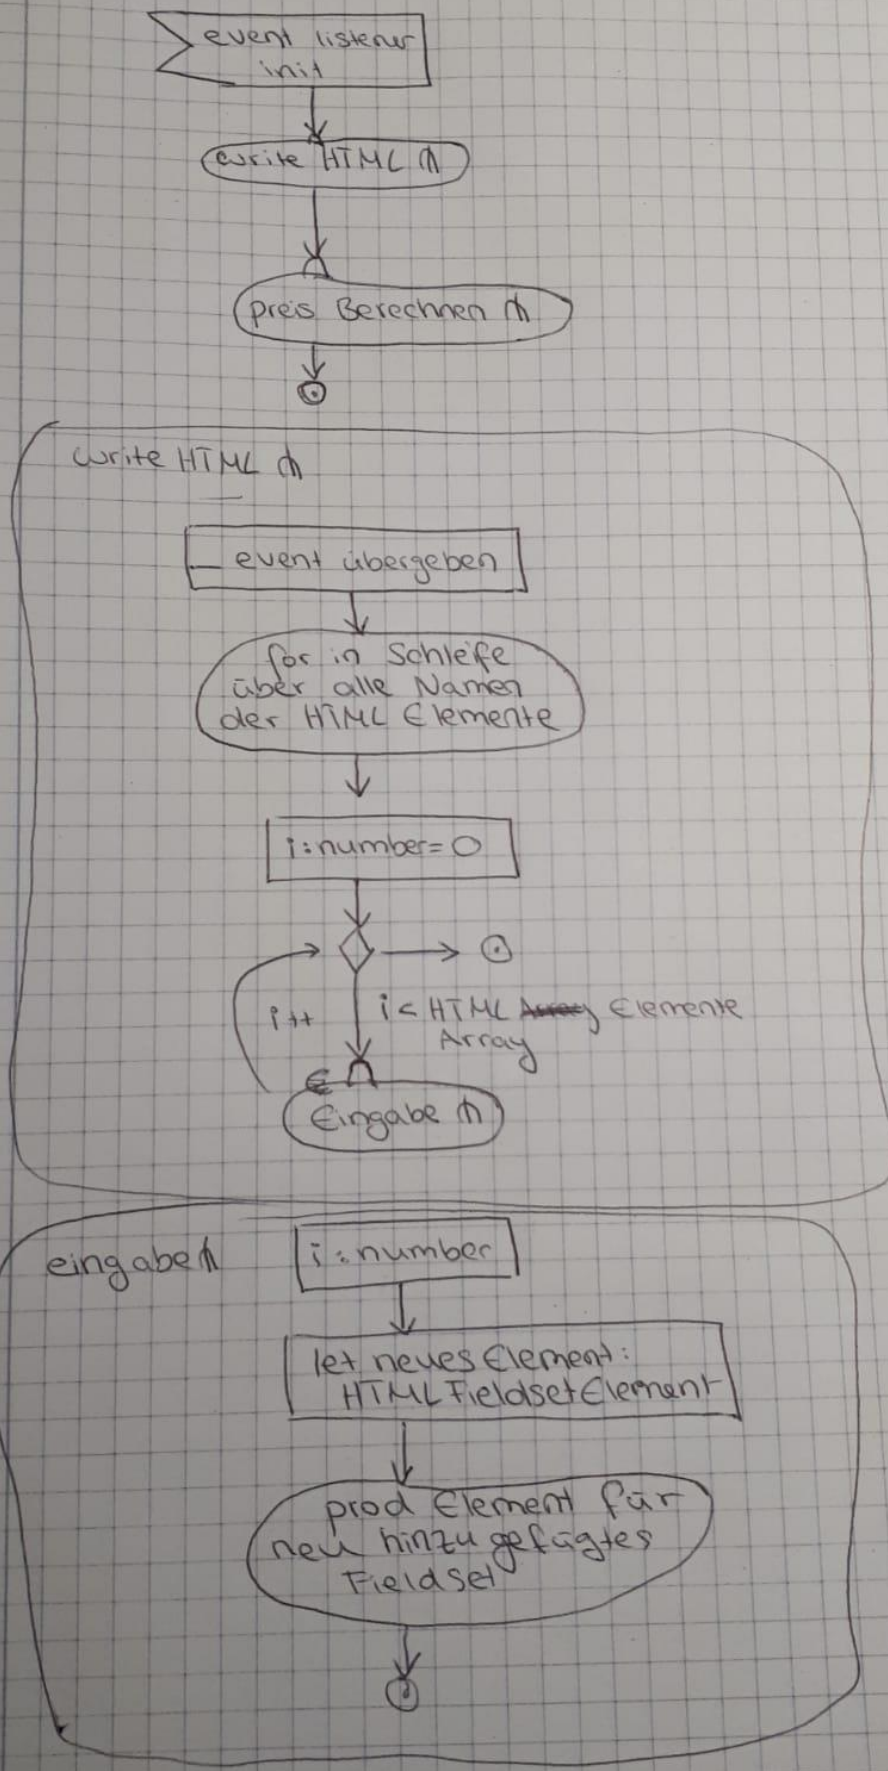 event listener
init
write HTML
preis Berechnen
write HTML
_ event übergeben
for in Schleife
über alle Namen
der HTML Elemente
i:number=0
i++
i< HTML Array Elemente
Array
Eingabe
eingabe
i:number
let neues Element:
HTMLFieldsetElement
prod Element für
neu hinzugefügtes
Fieldset